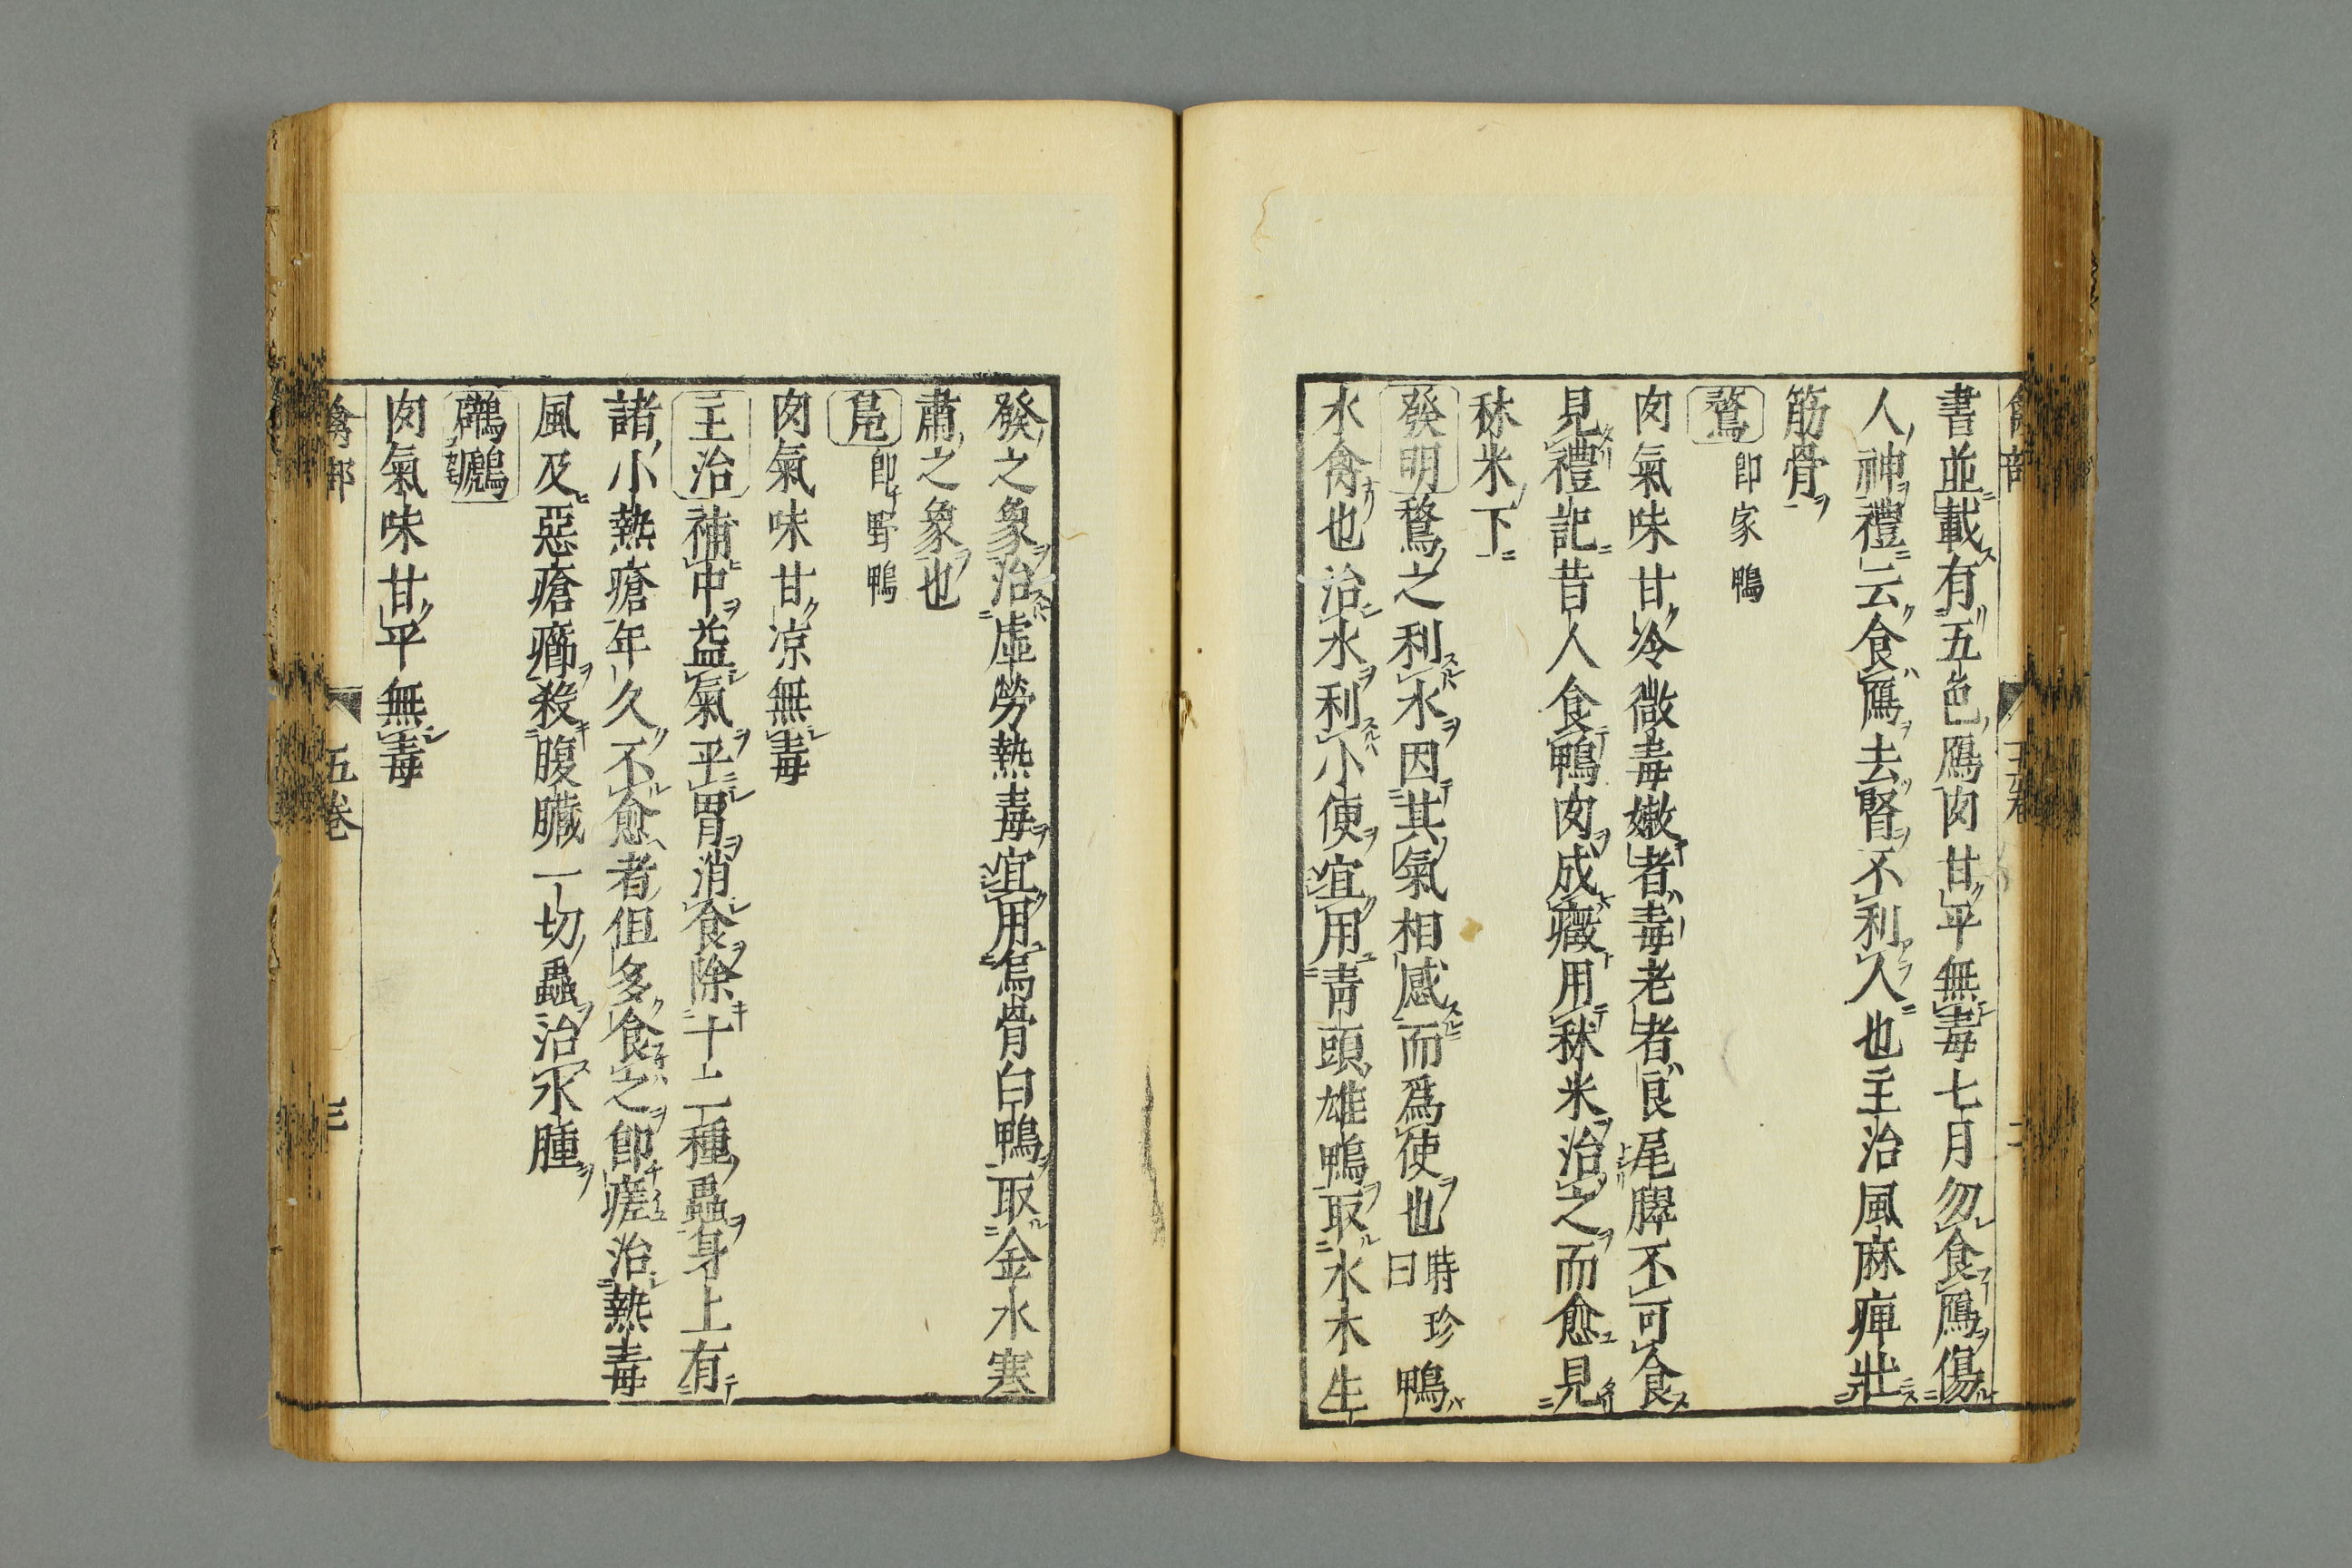 書並載有五色鴈肉甘平無毒七月勿食鴈傷
人神禮云食鴈去腎不利人也主治風麻痺壯
筋骨
鶩 卽家鴨
肉氣味甘冷微毒嫩者毒老者良尾臎不可食
見禮記昔人食鴨肉成癥用秫米治之而愈見
秫米下
發明 鶩之利水因其氣相感而爲使也時珍曰鴨
水禽也治水利小便宜用靑頭雄鴨取水木生
發之象治虛勞熱毒宜用烏骨白鴨取金水寒
肅之象也
鳧 卽野鴨
肉氣味甘凉無毒
主治 補中益氣平胃消食除十二種蟲身上有
諸小熱瘡年久不愈者但多食之卽瘥治熱毒
風及惡瘡癤殺腹臟一切蟲治水腫
鸊鷉
肉氣味甘平無毒
禽部 五卷 三